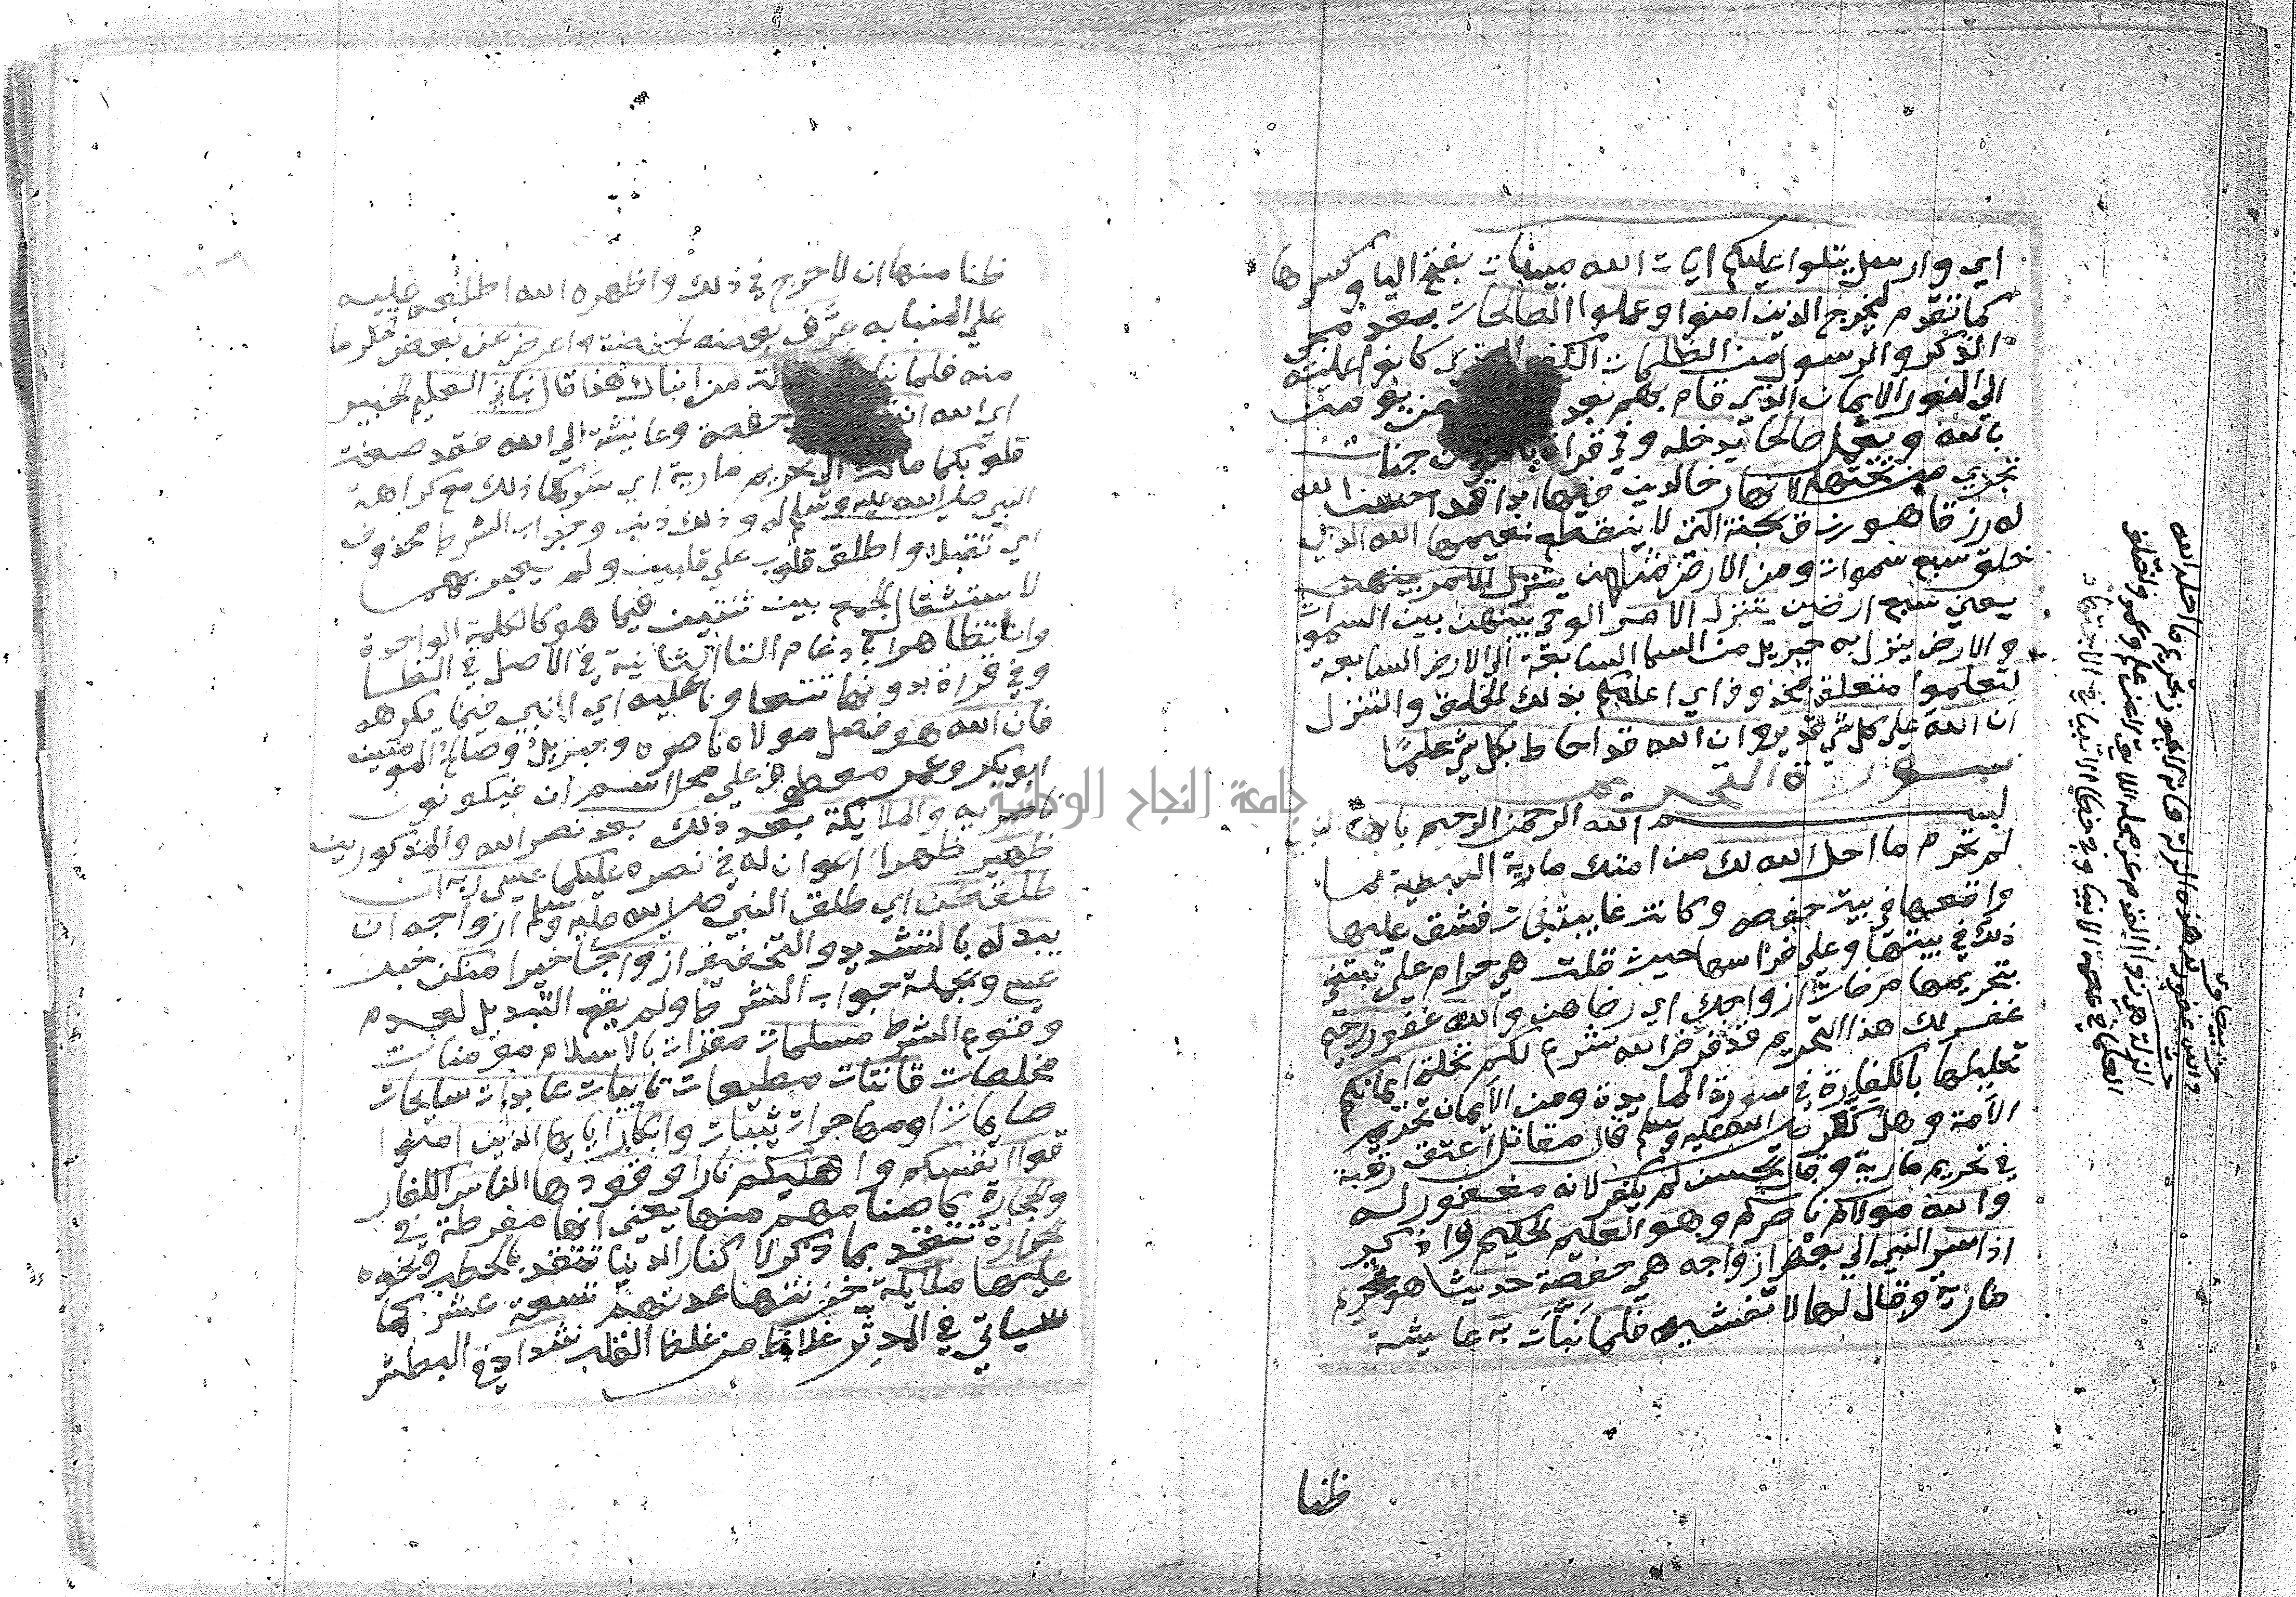 اي وارسل يتلوا عليكم ايات الله مبينات بفتح اليا وكسرها
كما تقدم ليخرج الذين امنوا وعملوا الصالحات بعد مجي
الذكر والرسول من الظلمات الكفر الذي كانوا عليه
الي النور الايمان الذي قام بهم بعد ومن يومن
بالله ويعمل صالحا يدخله وفي قراة بالنون جنات
تجري من تحتها الانهار خالدين فيها ابدا قد احسن الله
له رزقا هو رزق الجنة التي لا ينقطع نعيمها الله الذي
خلق سبع سموات ومن الارض مثلهن يتنزل الامر بينهن
يعني سبع ارضين يتنزل الامر الوحي بينهن بين السموات
والارض ينزل به جبريل من السما السابعة الي الارض السابعة
لتعلموا متعلق بمحذوف اي اعلمكم بذلك الخلق والتنزل
ان الله علي كل شي قدير وان الله قد احاط بكل شي علما
سورة التحريم
بسم الله الرحمن الرحيم يايها النبي
لم تحرم ما احل الله لك من امتك مارية القبطية لما
واقعها في بيت حفصه وكانت غايبة فجات فشق عليها
ذلك في بيتها وعلي فراشها حيث قلت هي حرام علي تبتغي
بتحريمها مرضات ازواجك اي رضاهن والله غفور رحيم
غفر لك هذا التحريم قد فرض الله شرع لكم تحلة ايمانكم
تحليلها بالكفارة في سورة المايدة ومن الايمان تحريم
الامة وهل كفر صلي الله عليه وسلم قال مقاتل اعتق رقبة
في تحريم مارية وقال الحسن لم يكفر لانه مغفور له
والله مولاكم ناصركم وهو العليم الحكيم واذكر
اذ اسر النبي الي بعض ازواجه هي حفصة حديثا هو تحريم
مارية وقال لها لا تفشيه فلما نبات به عايشة
ظنا
ظنا منها ان لا حرج في ذلك واظهره الله اطلعه عليه
علي المنبا به عرف بعضه لحفصة واعرض عن بعض تكرما
منه فلما قالت من انباك هذا قال نباني العليم الخبير
اي الله ان حفصة وعايشة الي الله فقد صغت
قلوبكما مالت الي تحريم مارية اي سركما ذلك مع كراهة
النبي صلي الله عليه وسلم له وذلك ذنب وجواب الشرط محذوف
اي تقبلا واطلق قلوب علي قلبين ولم يعبر بهما
لاستثقال الجمع بين تثنيتين فيما هو كالكلمة الواحدة
وان تظاهرا بادغام التا الثانية في الاصل في الظا
وفي قراة بدونها تتعاونا عليه اي النبي فيما يكرهه
فان الله هو فصل مولاه ناصره وجبريل وصالح المومنين
ابو بكر وعمر معطوف علي محل اسم ان فيكونون
ناصريه والملايكة بعد ذلك بعد نصر الله والمذكورين
ظهير ظهرا اعوان له في نصره عليكما عسي ربه ان
طلقكن اي طلق النبي صلي الله عليه وسلم ازواجه ان
يبدله بالتشديد والتخفيف ازواجا خيرا منكن خبر
عسي والجملة جواب الشرط ولم يقع التبديل لعدم
وقوع الشرط مسلمات مقرات بالاسلام مومنات
مخلصات قانتات مطيعات تايبات عابدات سايحات
صايمات او مهاجرات ثيبات وابكارا يايها الذين امنوا
قوا انفسكم واهليكم نارا وقودها الناس الكفار
والحجارة كاصنامهم منها يعني انها مفرطة في
الحرارة تتقد بما ذكر لا كنار الدنيا تتقد بالحطب ونحوه
عليها ملايكة خزنتها عدتهم تسعة عشر كما
سياتي في المدثر غلاظ من غلظ القلب شداد في البطش
جامعة النجاح الوطنية